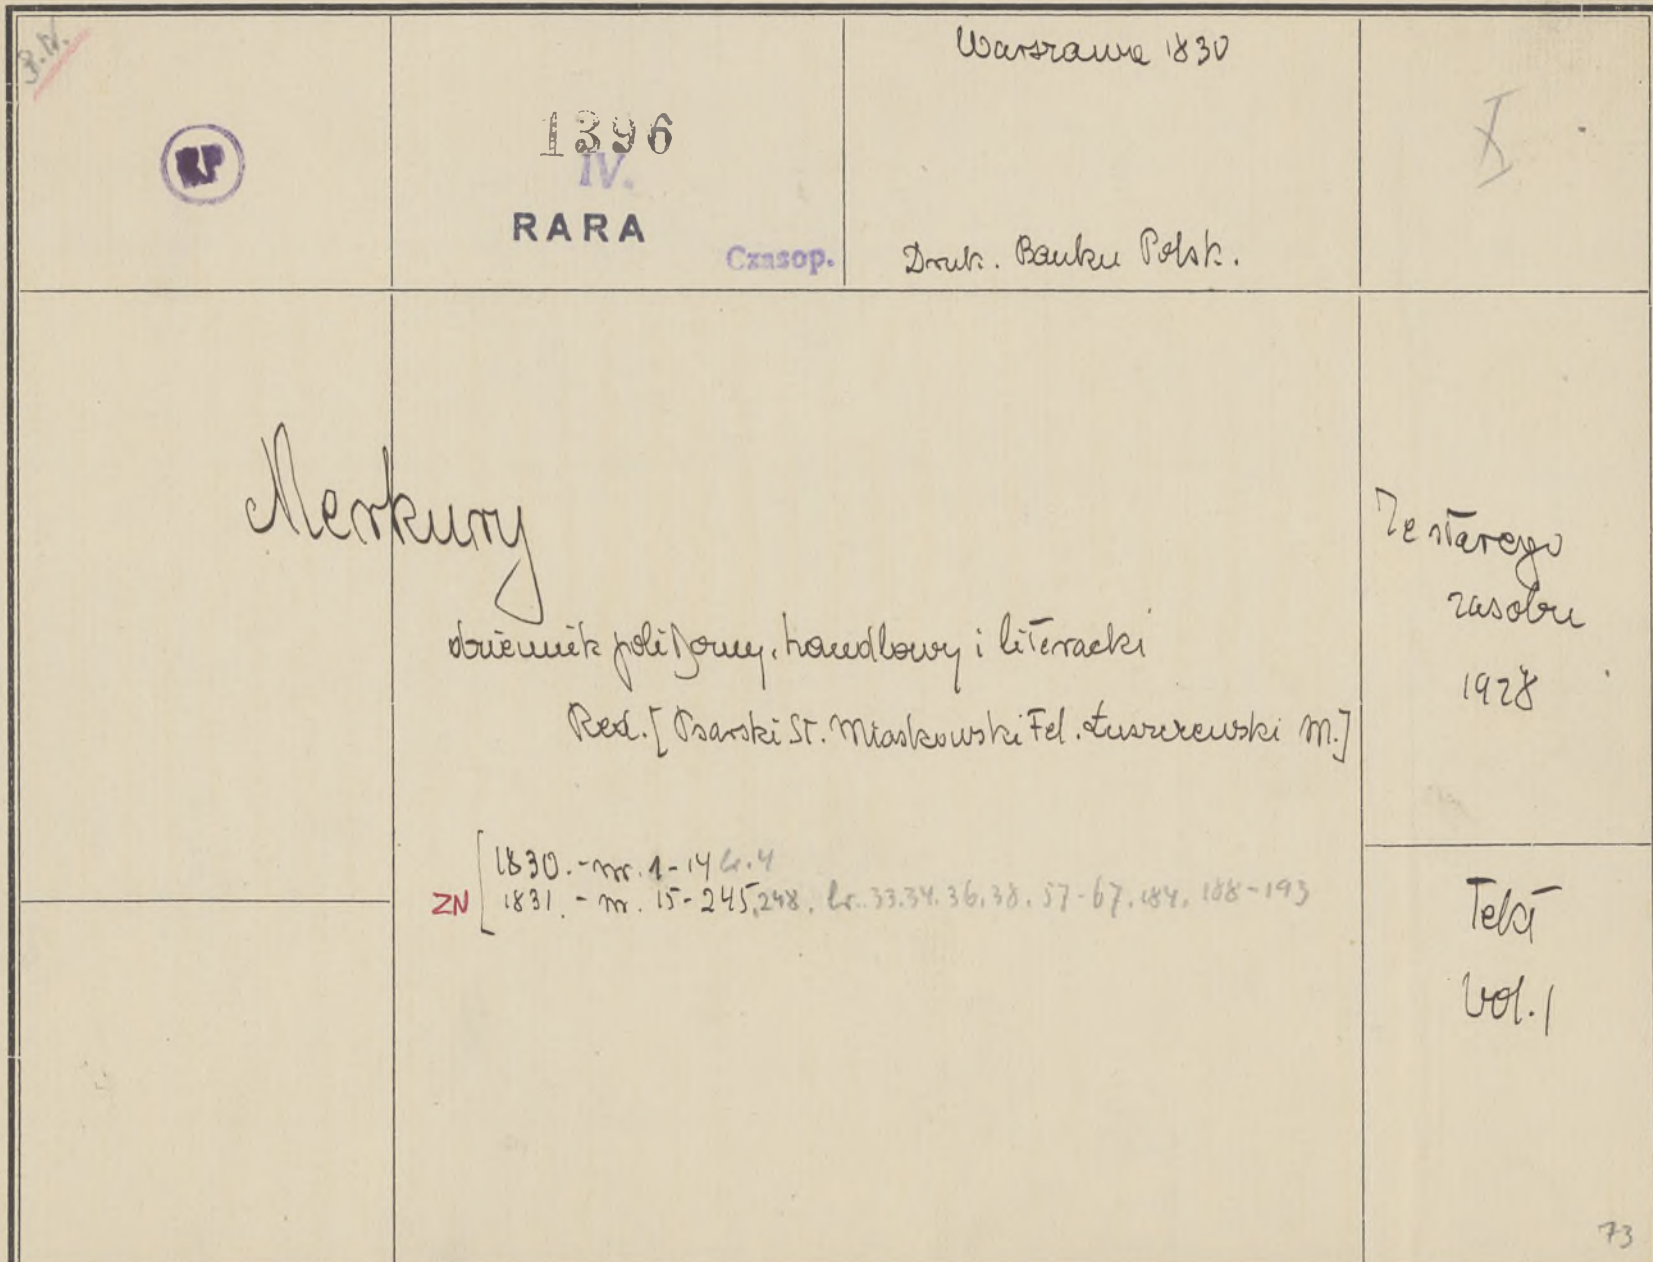 P.N.
RP
1396
IV.
RARA
Czasop.
Warszawa 1830
Druk. Banku Polsk.
X
Merkury
dziennik polityczny, handlowy i literacki
Red. [Psarski St. Miaskowski Fel. Łuszczewski M.]
Ze starego
zasobu
1928
ZN
1830. - nr. 1-14 br. 4
1831. - nr. 15-245, 248. br. 33.34.36.38.57-67.184.188-193
Tekt
vol. 1
73